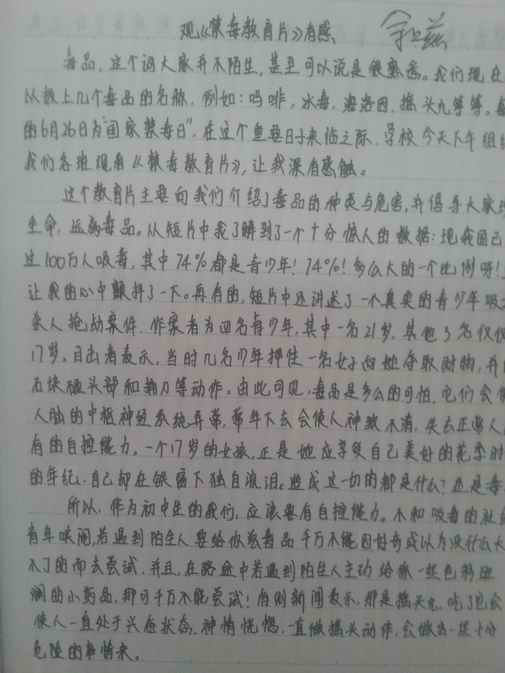 观《禁毒教育片》有感
毒品,这个词大家并不陌生,甚至可以说是很熟悉。我们现在
以报上几个毒品的名称,例如:吗啡,冰毒,海洛因,摇头丸等等。每
的6月26日为"国家禁毒日",在这个重要日子来临之际,学校今天下午组织
我们各班观看《禁毒教育片》,让我深有感触。
这个教育片主要向我们介绍了毒品的种类与危害,并倡导大家珍
生命,远离毒品。从短片中我了解到了一个十分惊人的数据:现我国已
过100万人吸毒,其中74%都是青少年!74%!多么大的一个比例呀!
让我的心中颤抖了一下。再有的,短片中还讲述了一个真实的青少年吸
杀人抢劫案件,作案者为四名青少年,其中一名21岁,其他3名仅仅
17岁。目击者表示,当时几名少年押住一名女子向她夺取财物,并
石块砸头部和捅刀等动作。由此可见,毒品是多么的可怕,它们会使
人脑的中枢神经系统异常,常年下去会使人神貌不清,失去正常人
有的自控能力。一个17岁的女孩,正是她应享受自己美好的花季时
的年纪,自己却在铁窗下独自流泪。造成这一切的都是什么?还是毒
所以,作为初中生的我们,应该要有自控能力。不和吸毒的社
青年来闹,若遇到陌生人要给你吸毒品千万不能因好奇或以为没什么大
不了的而去尝试,并且,在路途中若遇到陌生人主动给你一些色彩斑
斓的小药品,那可千万不能尝试!有则新闻表示,那是摇头丸,吃了它会
使人一直处于兴奋状态,神情恍惚,一直做摇头动作,会做出一些十分
危险的事情来。